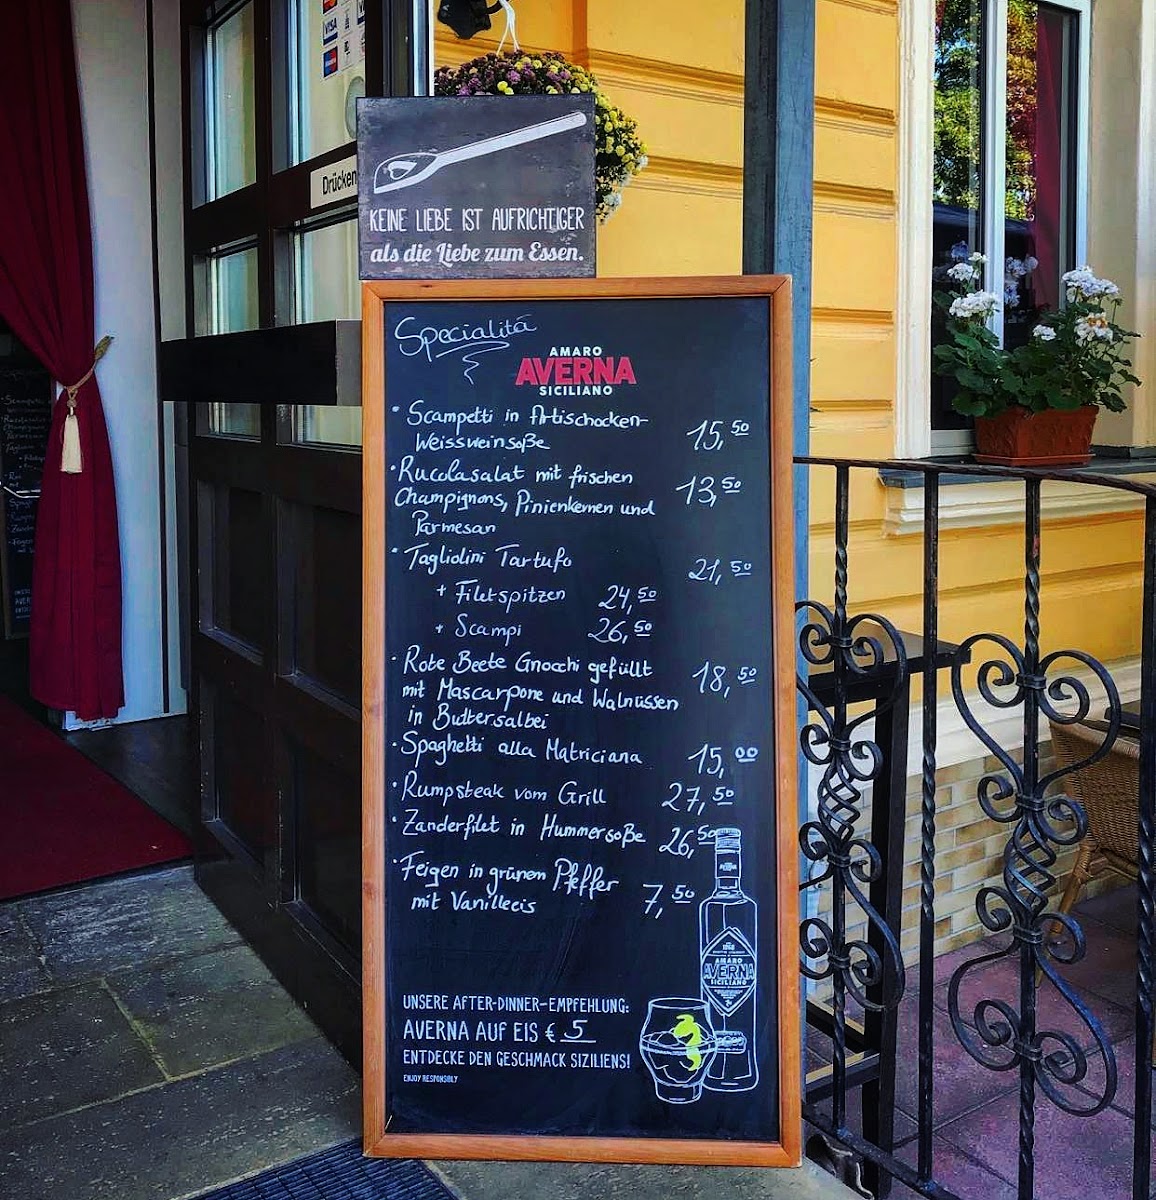 VISA
Drücken
KEINE LIEBE IST AUFRICHTIGER
als die Liebe zum Essen.
Specialitá
AMARO
AVERNA
SICILIANO
· Scampetti in Artischocken-
Weissweinsoße 15,50
· Rucolasalat mit frischen
Champignons, Pinienkernen und 13,50
Parmesan
· Tagliolini Tartufo 21,50
+ Filetspitzen 24,50
+ Scampi 26,50
· Rote Beete Gnocchi gefüllt
mit Mascarpone und Walnüssen 18,50
in Buttersalbei
· Spaghetti alla Matriciana 15,00
· Rumpsteak vom Grill 27,50
· Zanderfilet in Hummersoße 26,50
· Feigen in grünem Pfeffer
mit Vanilleeis 7,50
AMARO
AVERNA
SICILIANO
UNSERE AFTER-DINNER-EMPFEHLUNG:
AVERNA AUF EIS € 5
ENTDECKE DEN GESCHMACK SIZILIENS!
ENJOY RESPONSIBLY